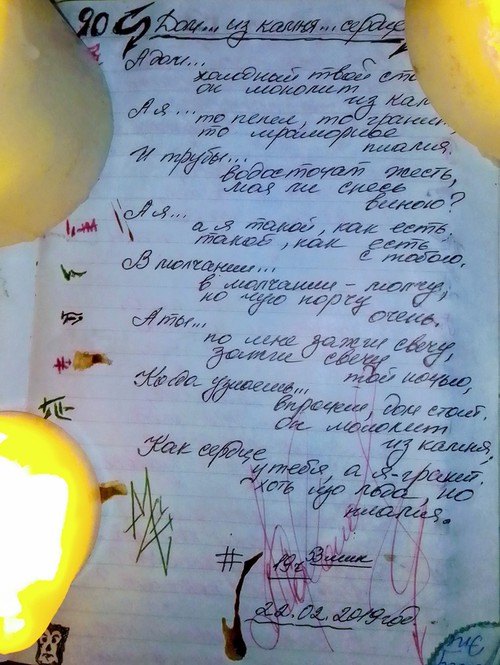 90 Дом... из камня... сердце
А дом...
холодный твой сто
он монолит
из кам
А я... то пепел, то гранит.
то мраморное
пламя.
И трубы...
водосточат жесть,
моя ли спесь
виною?
А я...
а я такой, как есть.
такой, как есть
с тобою.
В молчании...
в молчании - молчу,
но чую порчу
очень.
А ты...
по мне зажги свечу,
зажги свечу
той ночью,
Когда узнаешь...
впрочем, дом стоит.
он монолит
из камня,
Как сердце
у тебя, а я - гранит.
хоть изо льда, но
пламя.
#
19ч 3 мин
22.02.2019год